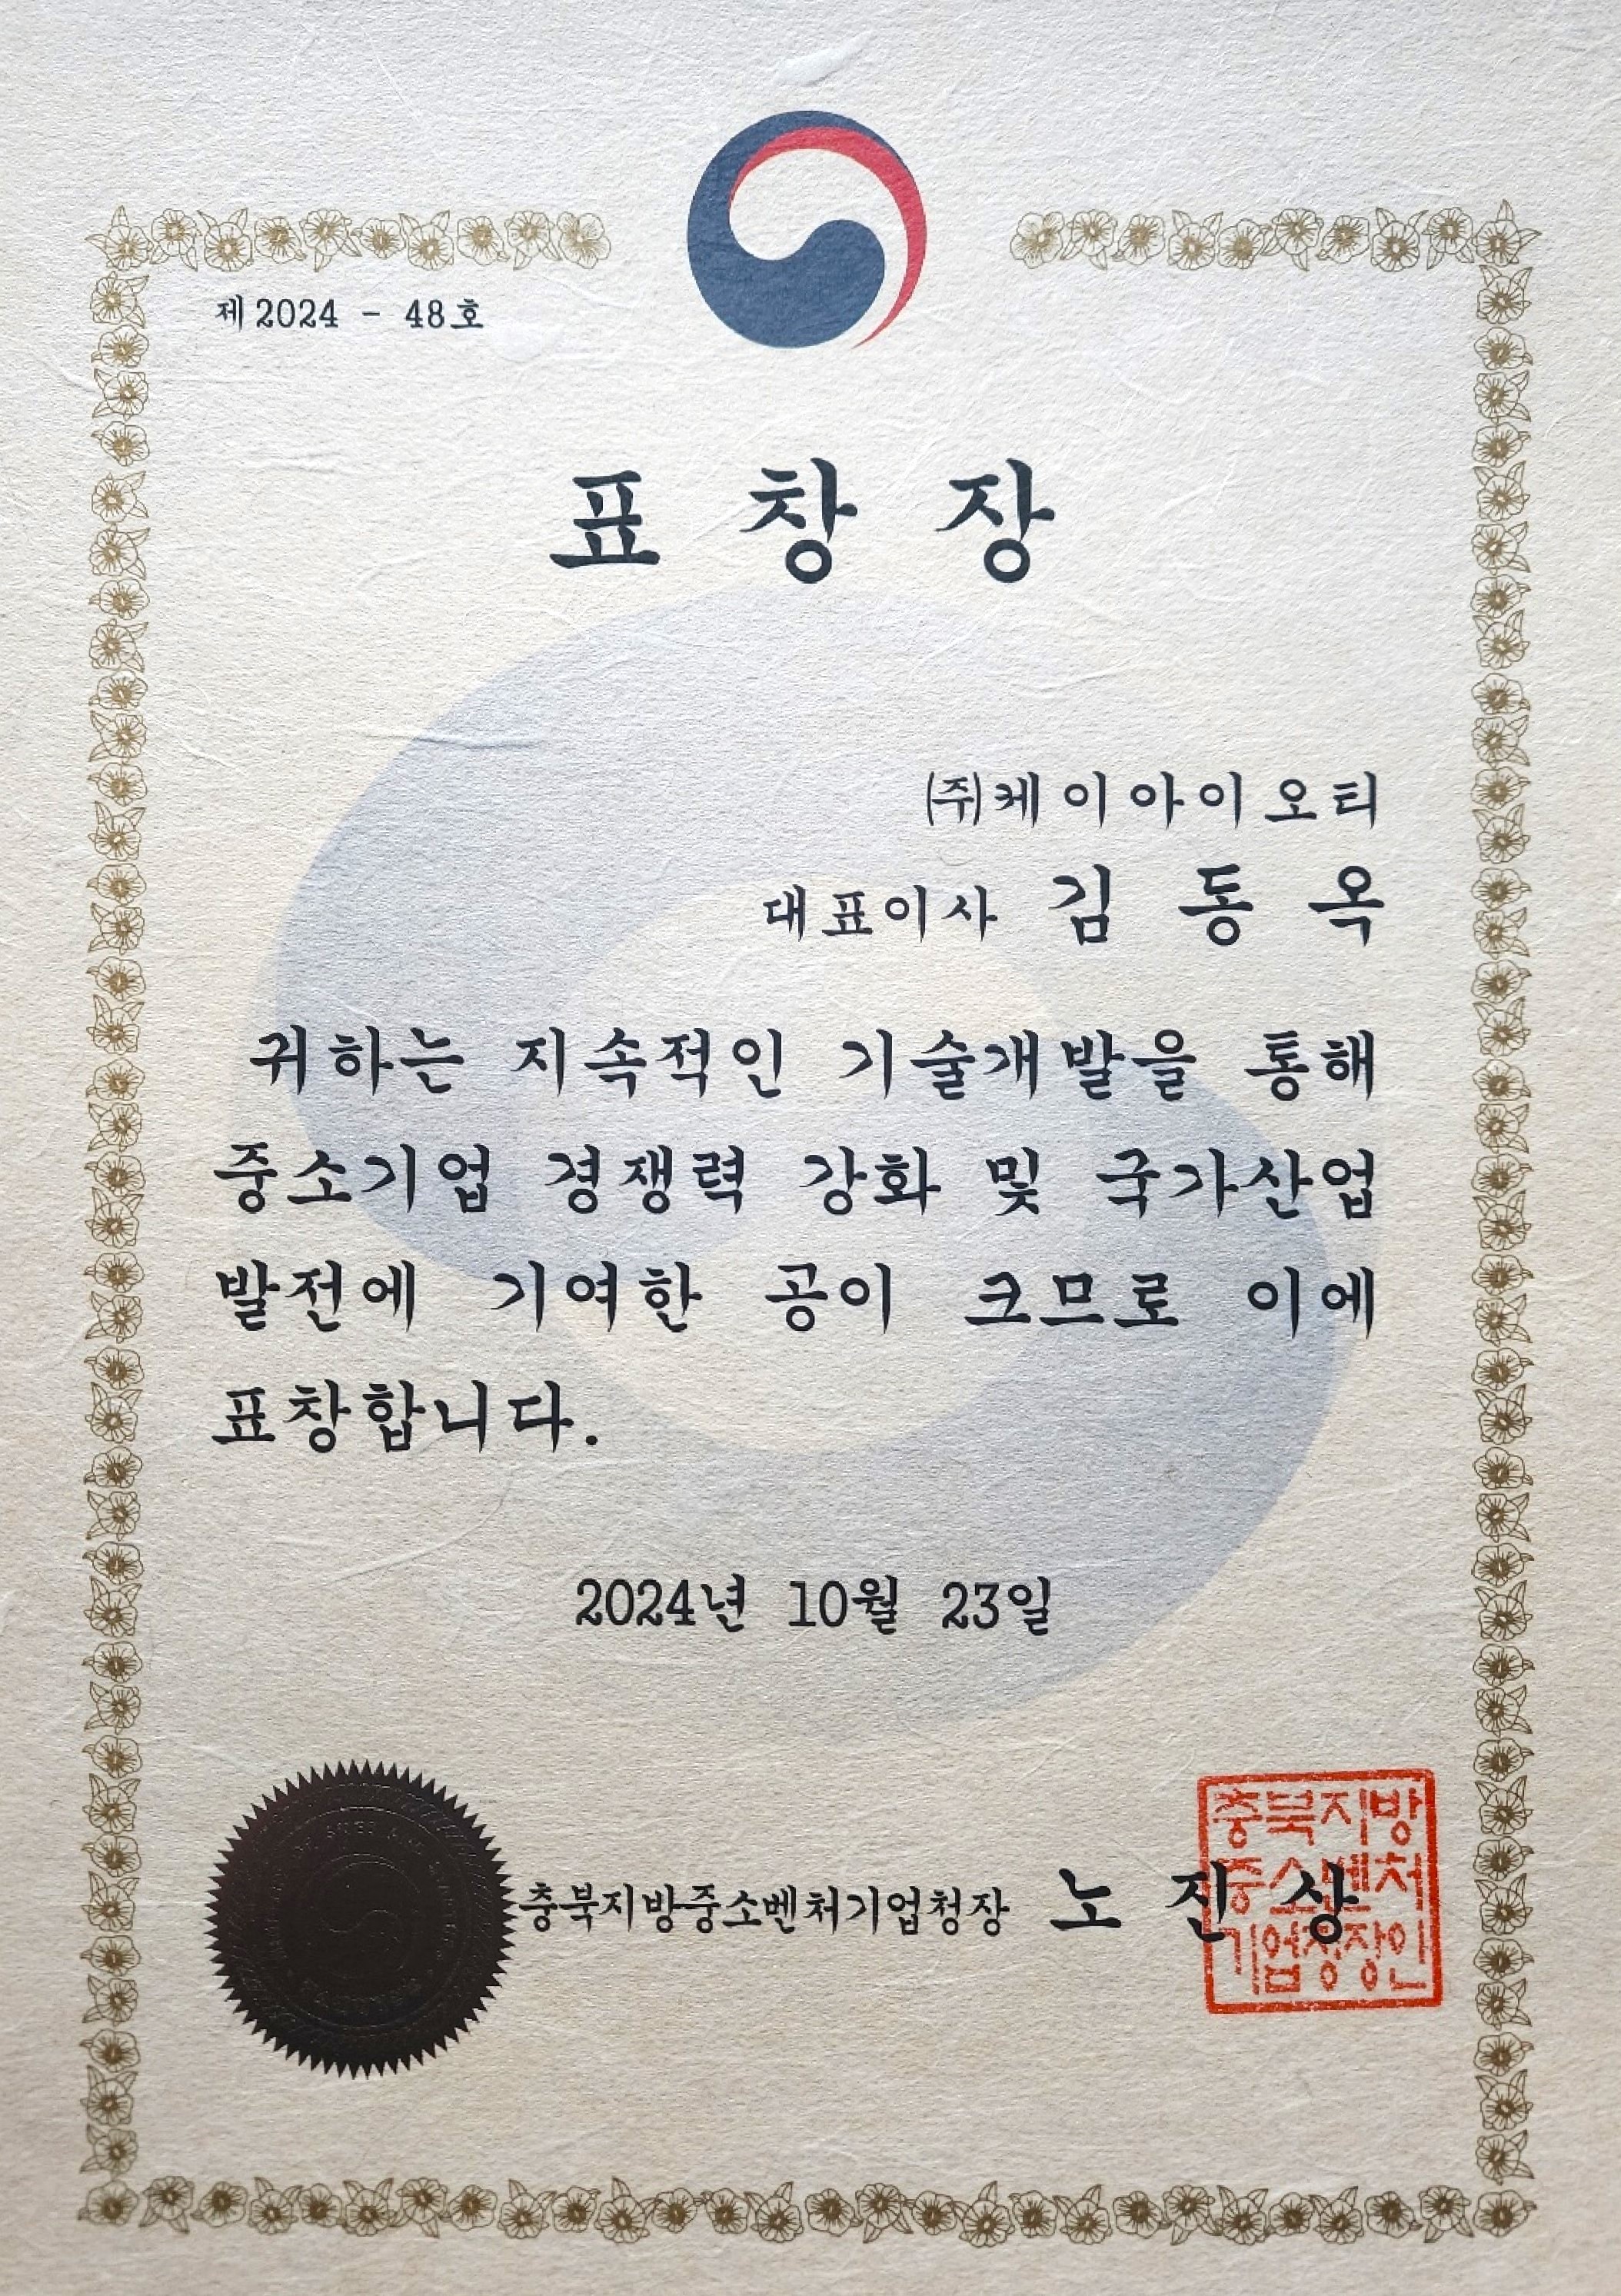 제2024 - 48호
표 창 장
㈜케이아이오티
대표이사 김 동 옥
귀하는 지속적인 기술개발을 통해
중소기업 경쟁력 강화 및 국가산업
발전에 기여한 공이 크므로 이에
표창합니다.
2024년 10월 23일
충북지방중소벤처기업청장 노 진 상
충북지방
중소벤처
기업청장인